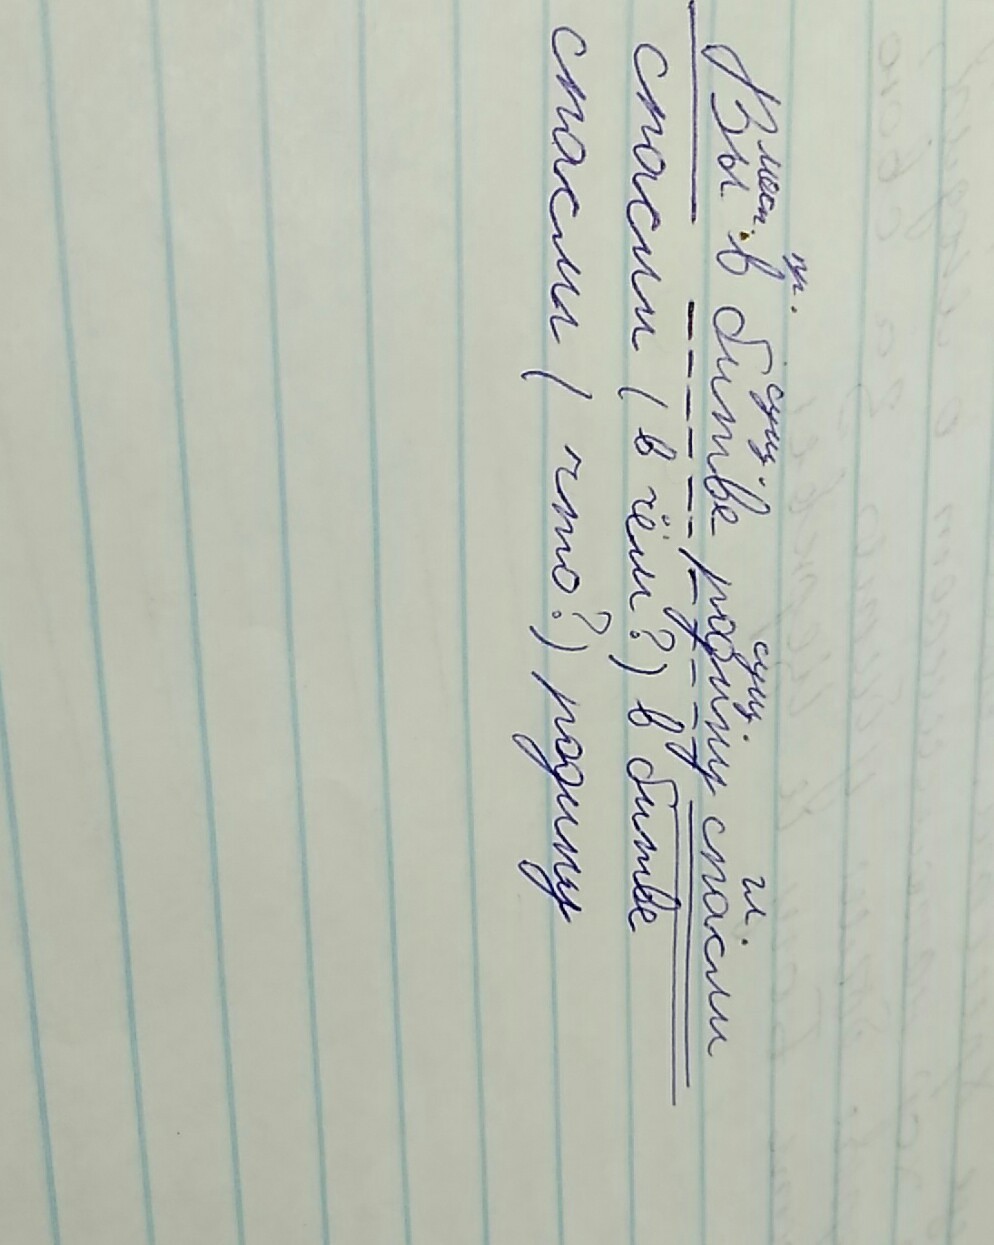 мест. пр. сущ. сущ. гл.
Вы в битве родину спасли
спасли (в чём?) в битве
спасли (что?) родину